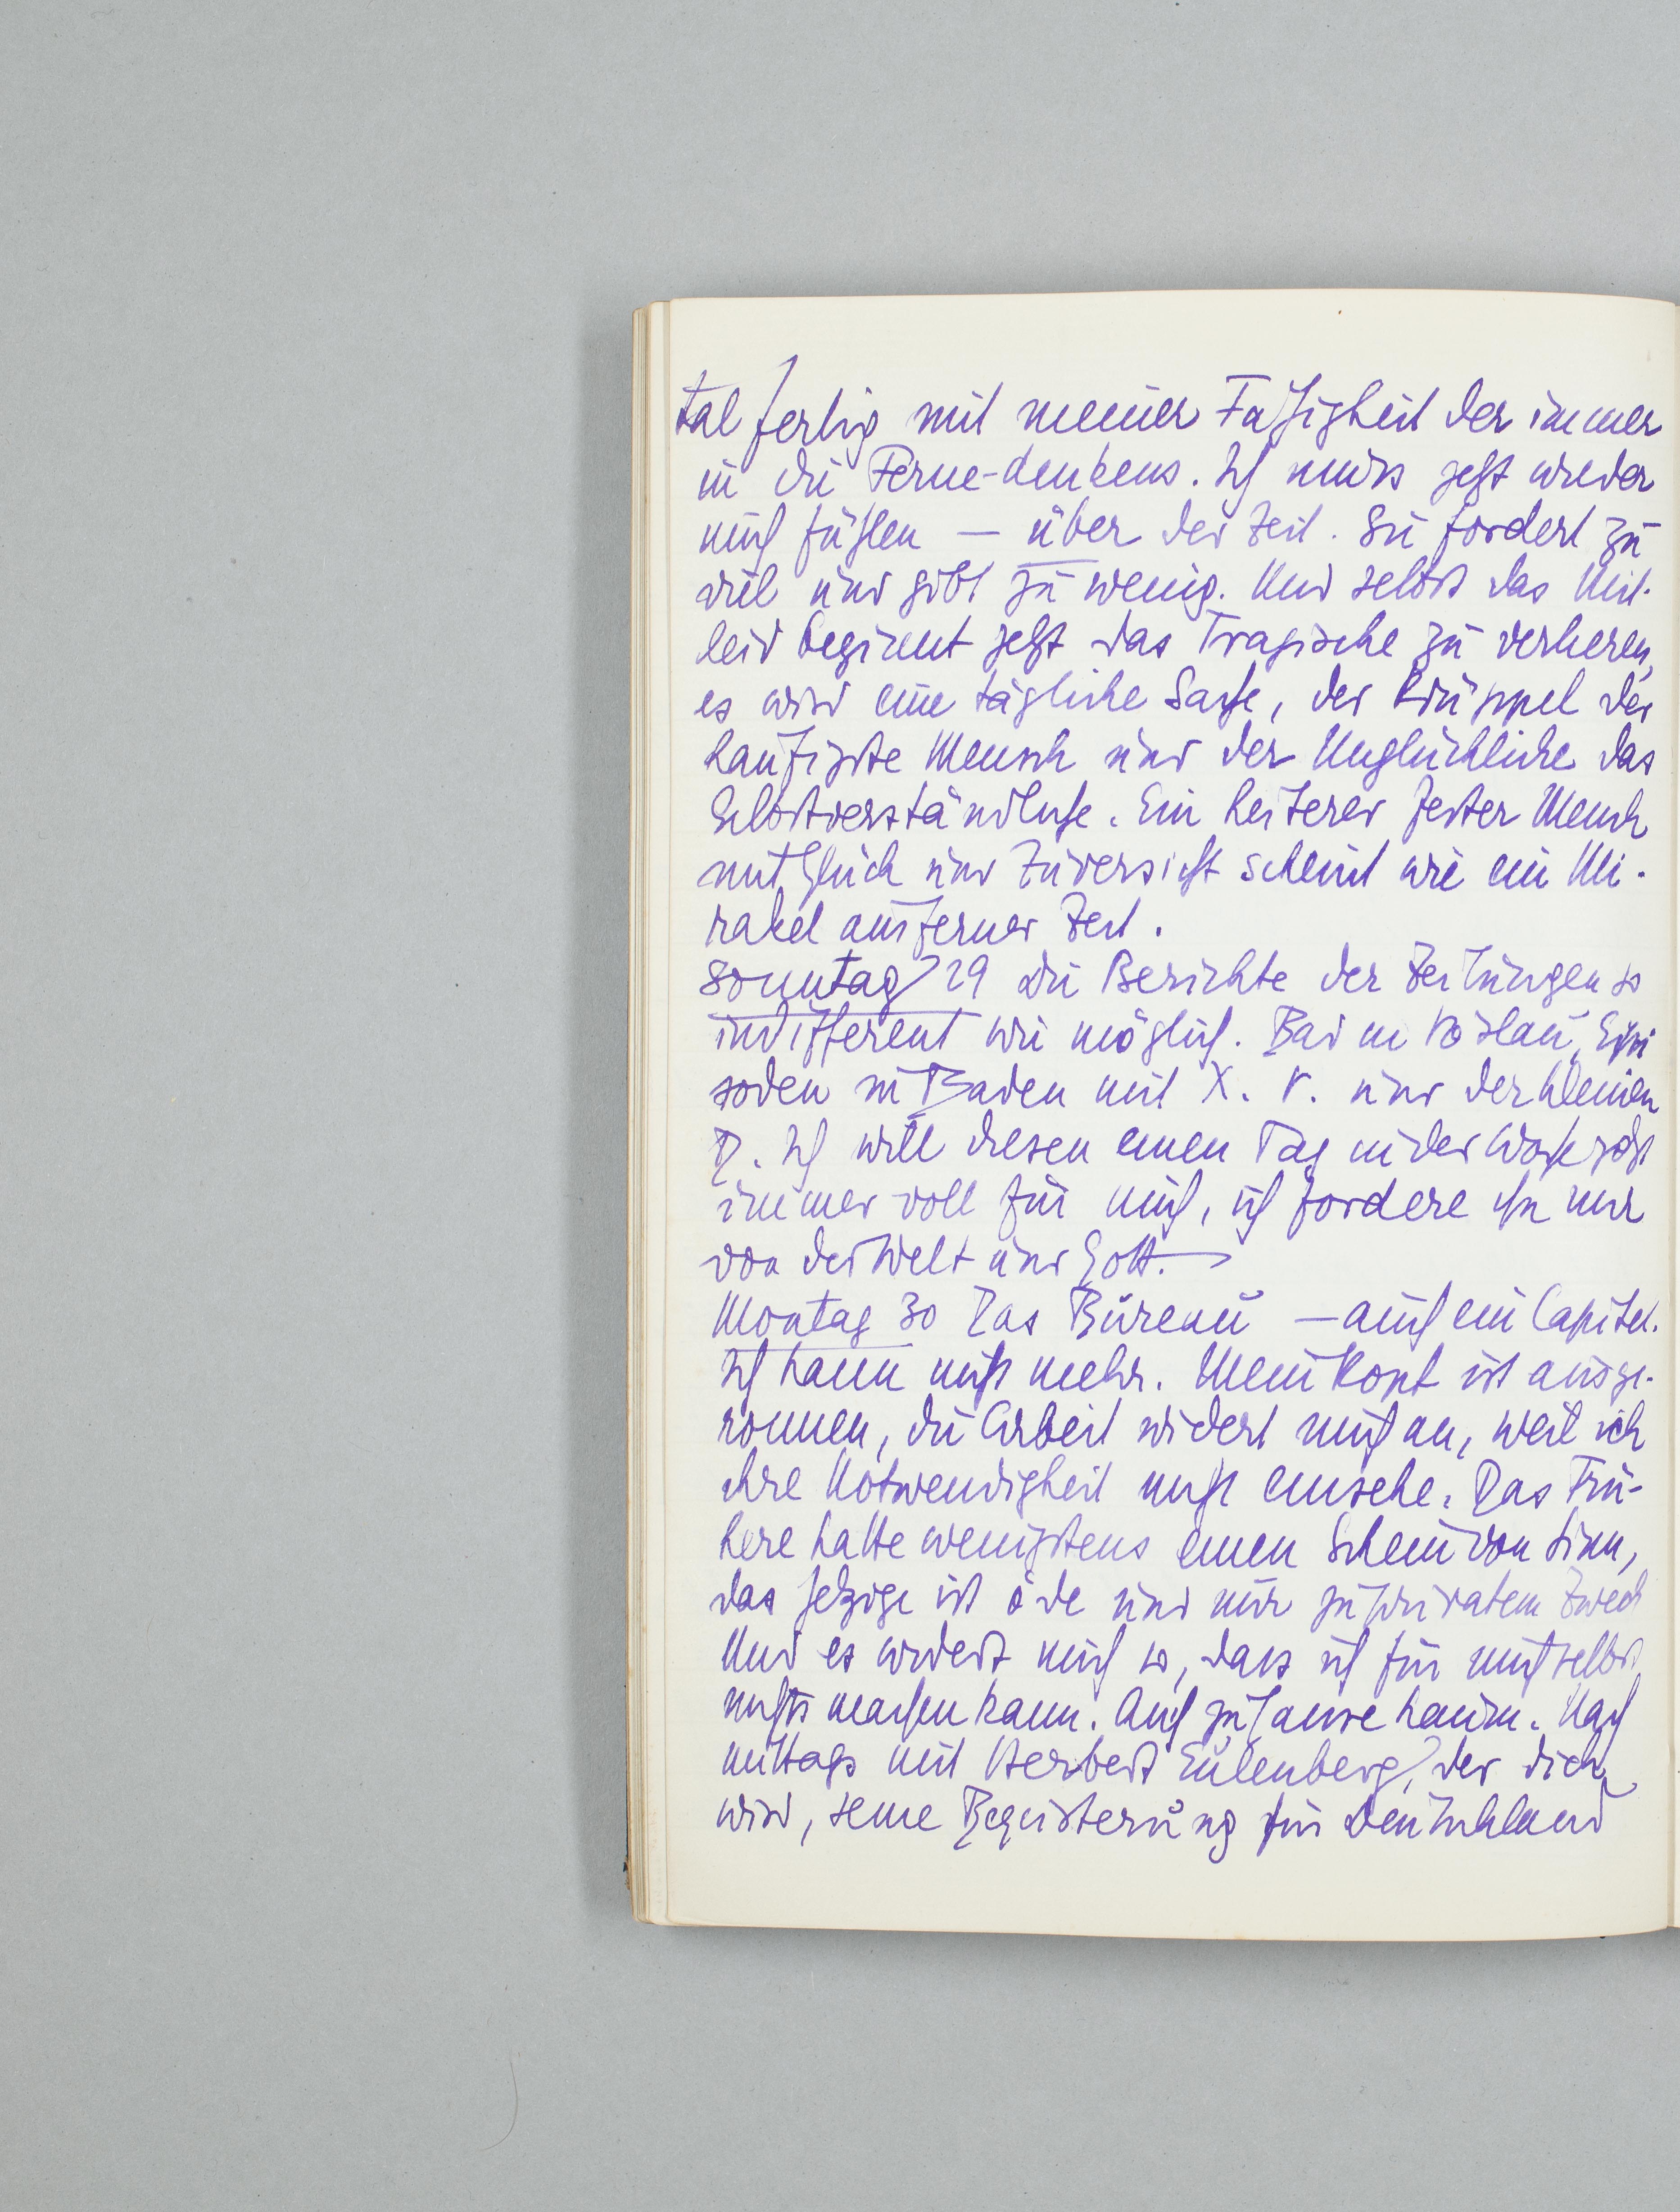 tal fertig mit meiner Fähigkeit der immer
in die Ferne-denkens. Ich muss jetzt wieder
mich fühlen — über der Zeit. Sie fordert zu
viel und gibt zu wenig. Und selbst das Mit-
leid beginnt jetzt das Tragische zu verlieren,
es wird eine tägliche Sache, der Krüppel der
häufigste Mensch und der Unglückliche das
Selbstverständliche. Ein heiterer fester Mensch
mit Glück und Zuversicht scheint wie ein Mi-
rakel aus ferner Zeit.
Sonntag 29 Die Berichte der Zeitungen so
indifferent wie möglich. Bad in Vöslau, Epi
soden in Baden mit X. V. und der kleinen
D. Ich will diesen einen Tag in der Woche jetzt
immer voll für mich, ich fordere ihn mir
von der Welt und Gott.
Montag 30 Das Büreau — auch ein Capitel.
Ich kann nicht mehr. Mein Kopf ist ausge-
ronnen, die Arbeit widert mich an, weil ich
ihre Notwendigkeit nicht einsehe. Das Frü-
here hatte wenigstens einen Schein von Sinn,
das Jetzige ist öde und nur zu privatem Zweck
Und es widert mich so, dass ich für mich selbst
nichts machen kann. Auch zuhause kaum. Nach
mittags mit Herbert Eulenberg, der dick
wird, seine Begeisterung für Deutschland